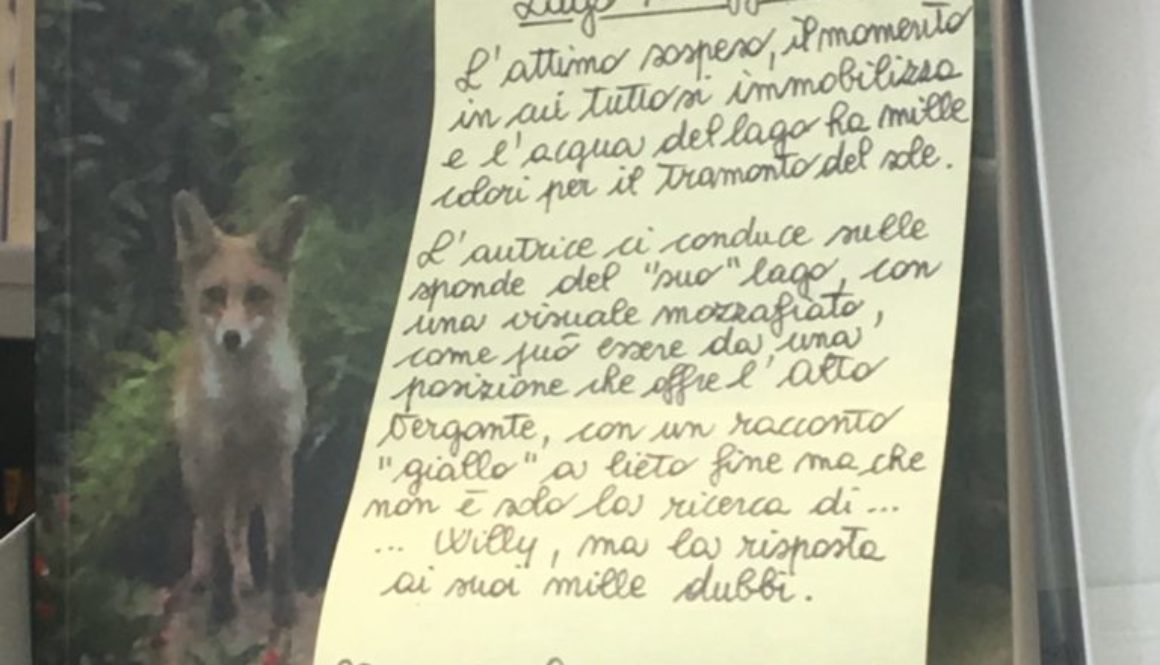 Lago
L'attimo sospeso, il momento
in cui tutto si immobilizza
e l'acqua del lago ha mille
colori per il tramonto del sole.
L'autrice ci conduce sulle
sponde del "suo" lago, con
una visuale mozzafiato,
come può essere da una
posizione che offre l'Alto
Vergante, con un racconto
"giallo" a lieto fine ma che
non è solo la ricerca di...
... Willy, ma la risposta
ai suoi mille dubbi.